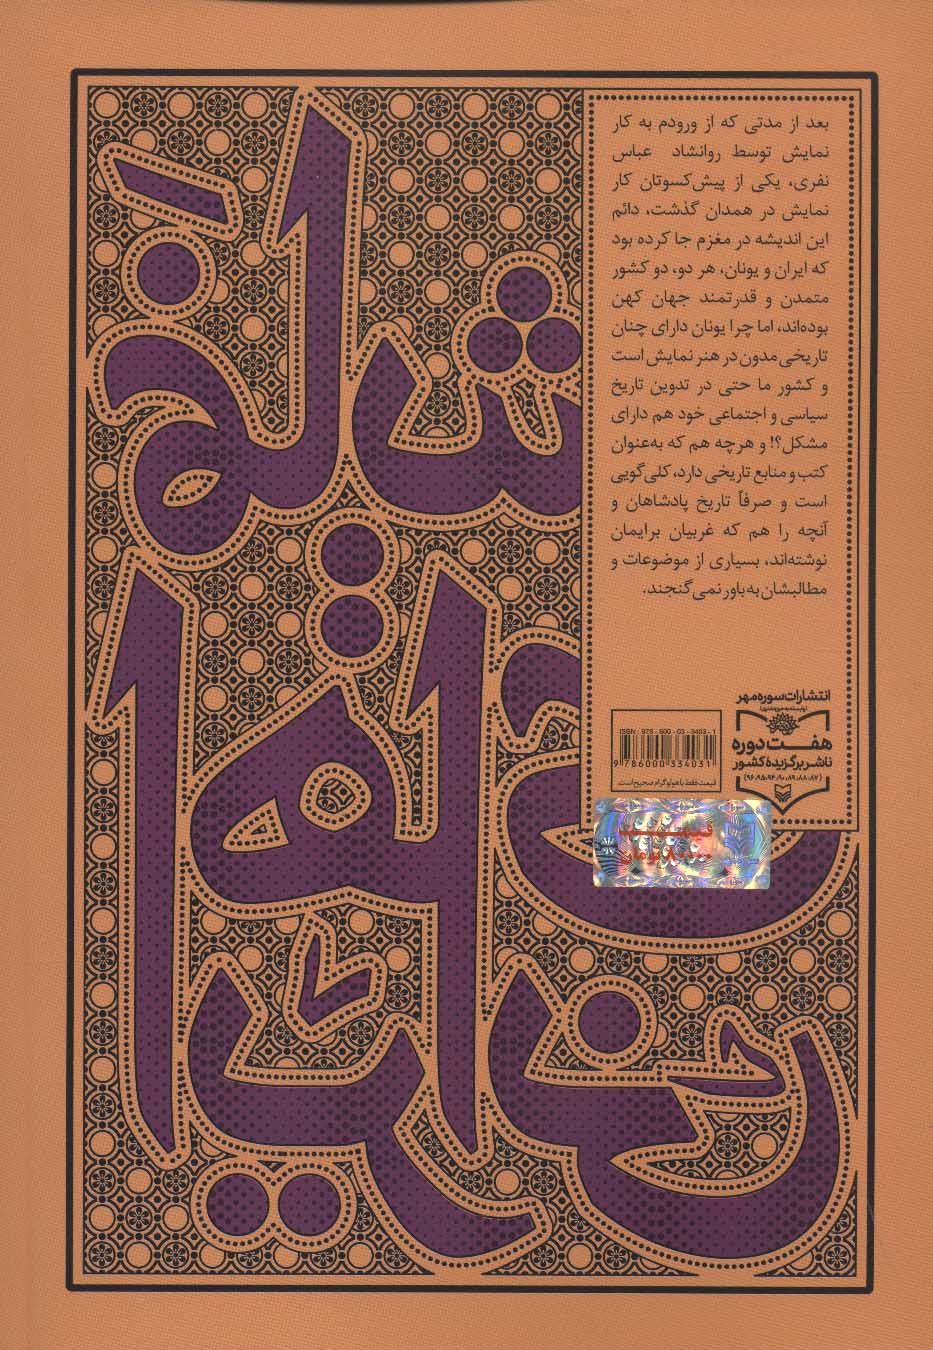 بعد از مدتی که از ورودم به کار
نمایش توسط روانشاد عباس
نفری، یکی از پیش‌کسوتان کار
نمایش در همدان گذشت، دائم
این اندیشه در مغزم جا کرده بود
که ایران و یونان، هر دو، دو کشور
متمدن و قدرتمند جهان کهن
بوده‌اند، اما چرا یونان دارای چنان
تاریخی مدون در هنر نمایش است
و کشور ما حتی در تدوین تاریخ
سیاسی و اجتماعی خود هم دارای
مشکل؟! و هرچه هم که به‌عنوان
کتب و منابع تاریخی دارد، کلی‌گویی
است و صرفاً تاریخ پادشاهان و
آنچه را هم که غربیان برایمان
نوشته‌اند، بسیاری از موضوعات و
مطالبشان به باور نمی‌گنجند.
انتشارات سوره مهر
هفت دوره
ناشر برگزیدهٔ کشور
(۸۷، ۸۸، ۸۹، ۹۰، ۹۴، ۹۵، ۹۶)
ISBN: 978-600-03-3403-1
9 786000 334031
قیمت فقط با هولوگرام صحیح است.
قیمت
۸۰۰۰۰ تومان